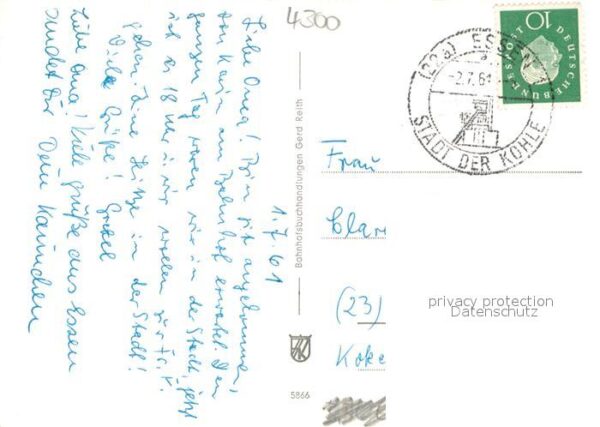 4300
1.7.61
Liebe Oma! Bin gut angekommen,
von Karin am Bahnhof erwartet. Den
ganzen Tag waren wir in der Stadt, jetzt
ist es 18 Uhr u. wir wollen zur Fr. K.
gehen. Eine Hitze in der Stadt!
Viele Grüße! Gretel
Liebe Oma! Viele Grüße aus Essen
sendet Dir Dein Kaninchen
Bahnhofsbuchhandlungen Gerd Reith
5866
(22a) ESSEN
-2.7.61
STADT DER KOHLE
10
DEUTSCHE BUNDESPOST
Frau
Clar
(23)
Koke
privacy protection
Datenschutz